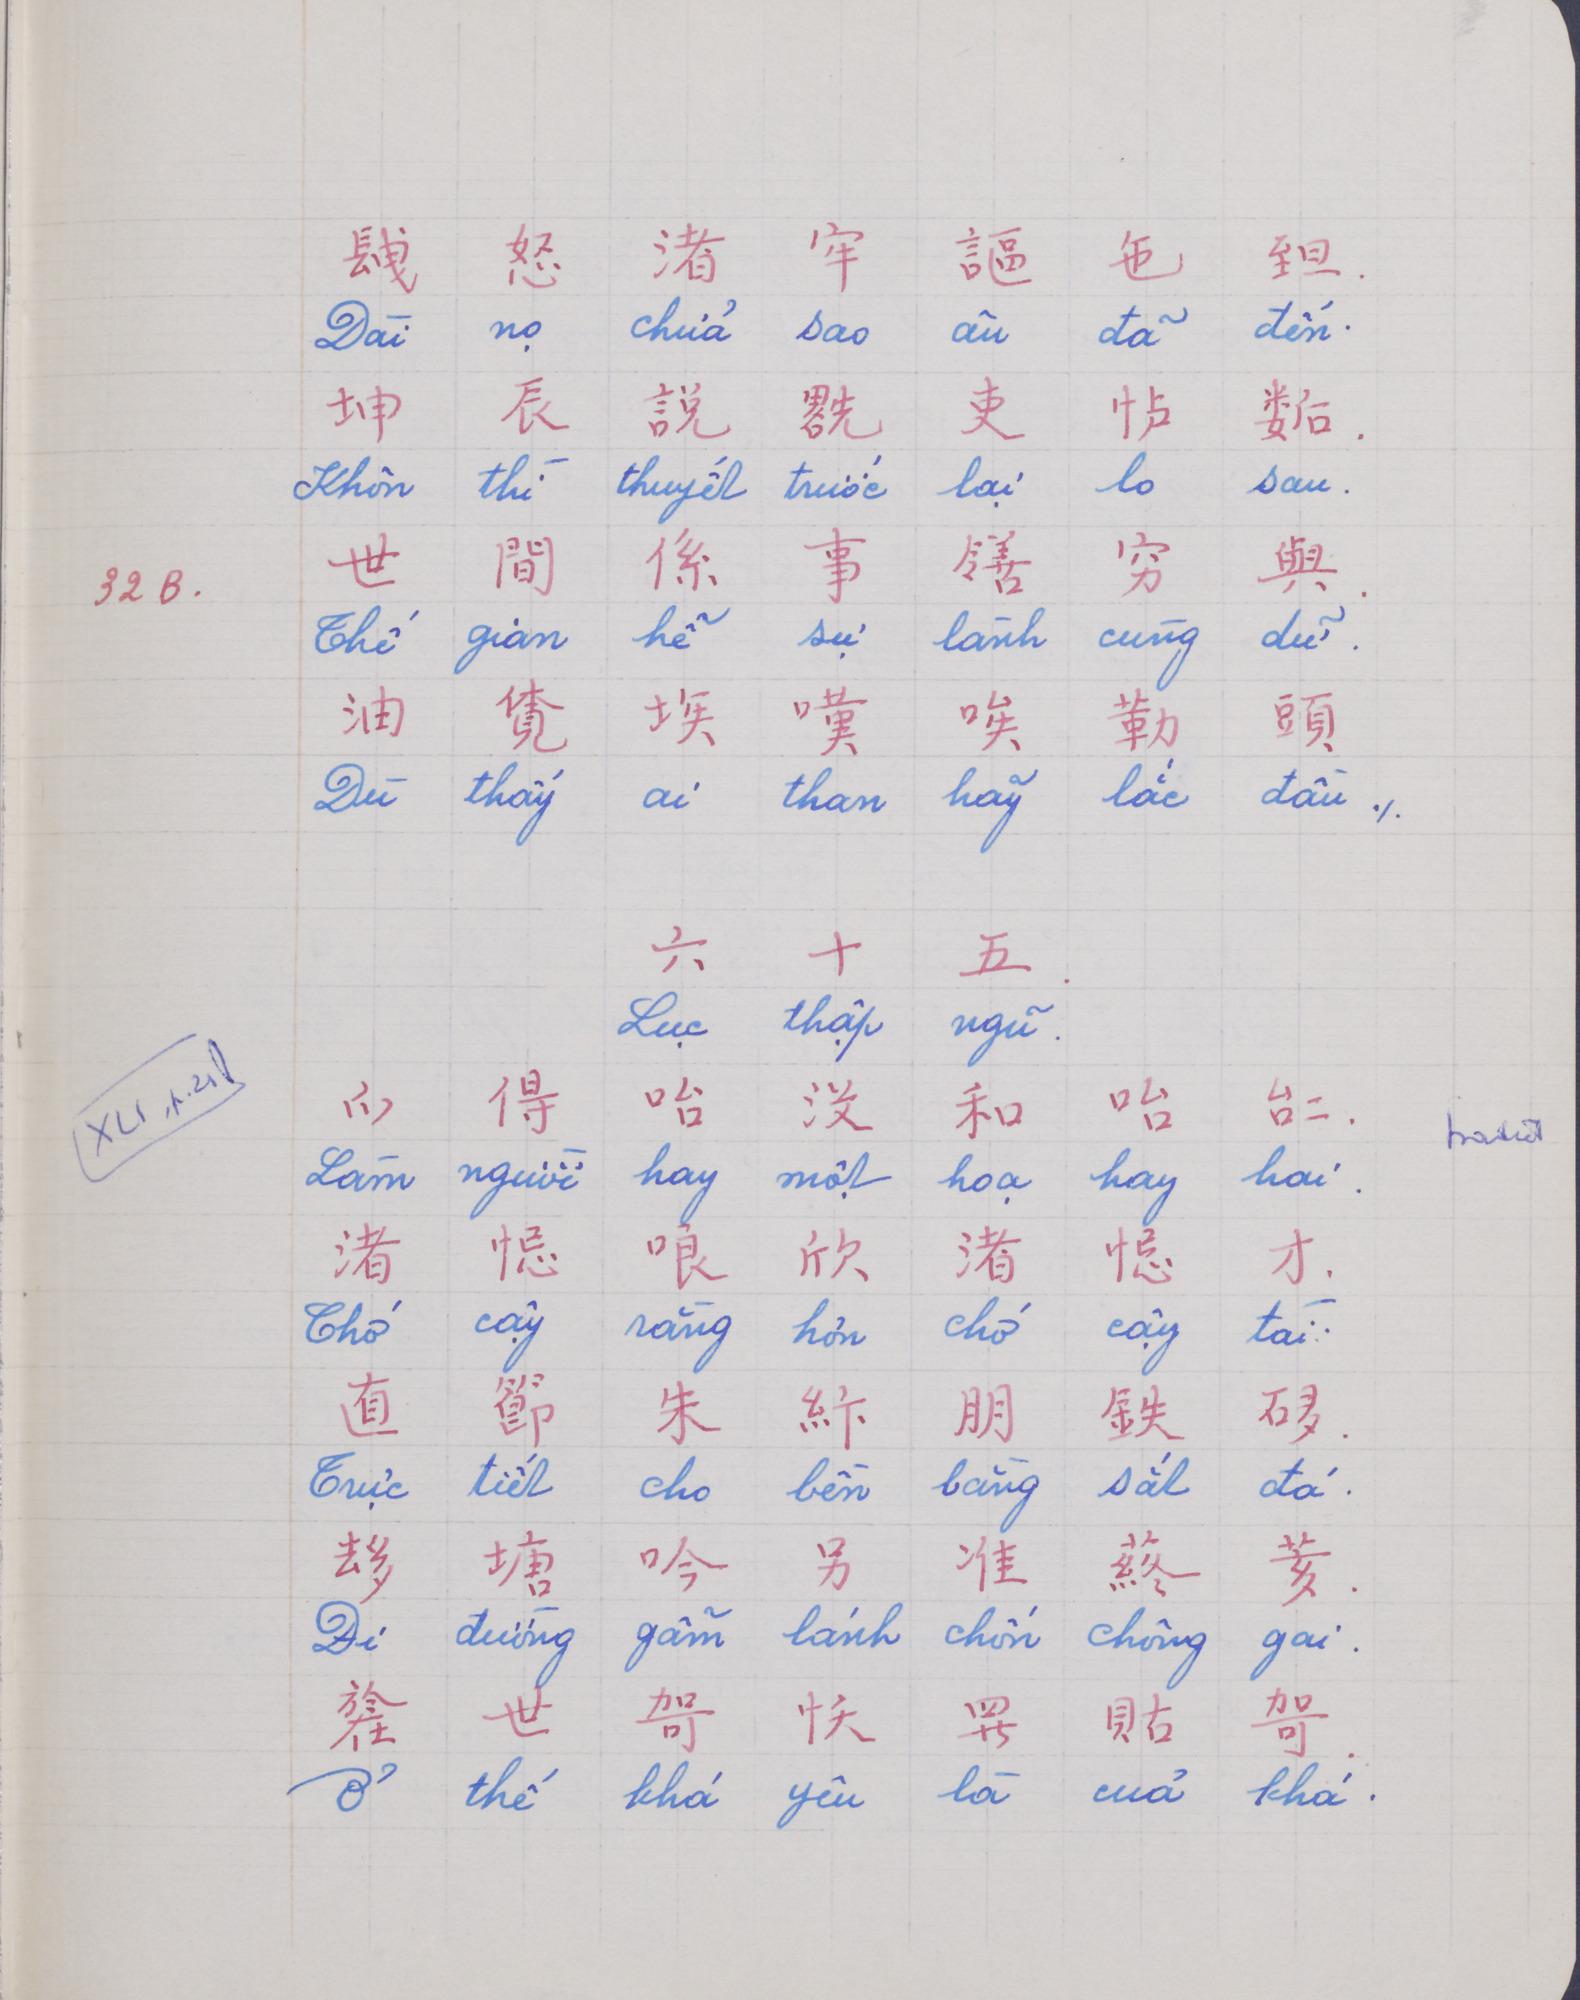 𨱽 怒 渚 牢 謳 㐌 𦤾.
Dài nọ chửa sao âu đã đến.
坤 辰 説 𠓀 吏 怗 𢖕.
Khôn thì thuyết trước lại lo sau.
32 B.
世 間 係 事 𫅜 穷 與.
Thế gian hễ sự lành cùng dữ.
油 𧡊 埃 嘆 唉 勒 頭
Dù thấy ai than hãy lắc đầu ./.
六 十 五.
Lục thập ngũ.
XLI, p. 21
𫜵 得 咍 没 和 咍 𠄩.
Làm người hay một hoạ hay hai.
渚 𢚁 哏 欣 渚 𢚁 才.
Chớ cậy rằng hơn chớ cậy tài.
直 節 朱 紞 朋 鉄 𥒥.
Trực tiết cho bền bằng sắt đá.
𠫾 塘 吟 另 准 𧄐 荄.
Đi đường gẫm lánh chốn chông gai.
𣄒 世 哿 㤇 羅 貼 哿.
Ở thế khá yêu là của khá.